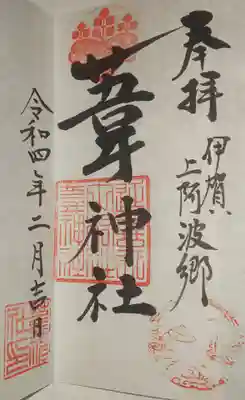 奉拝
伊賀
上阿波郷
葦神社
令和四年二月吉日